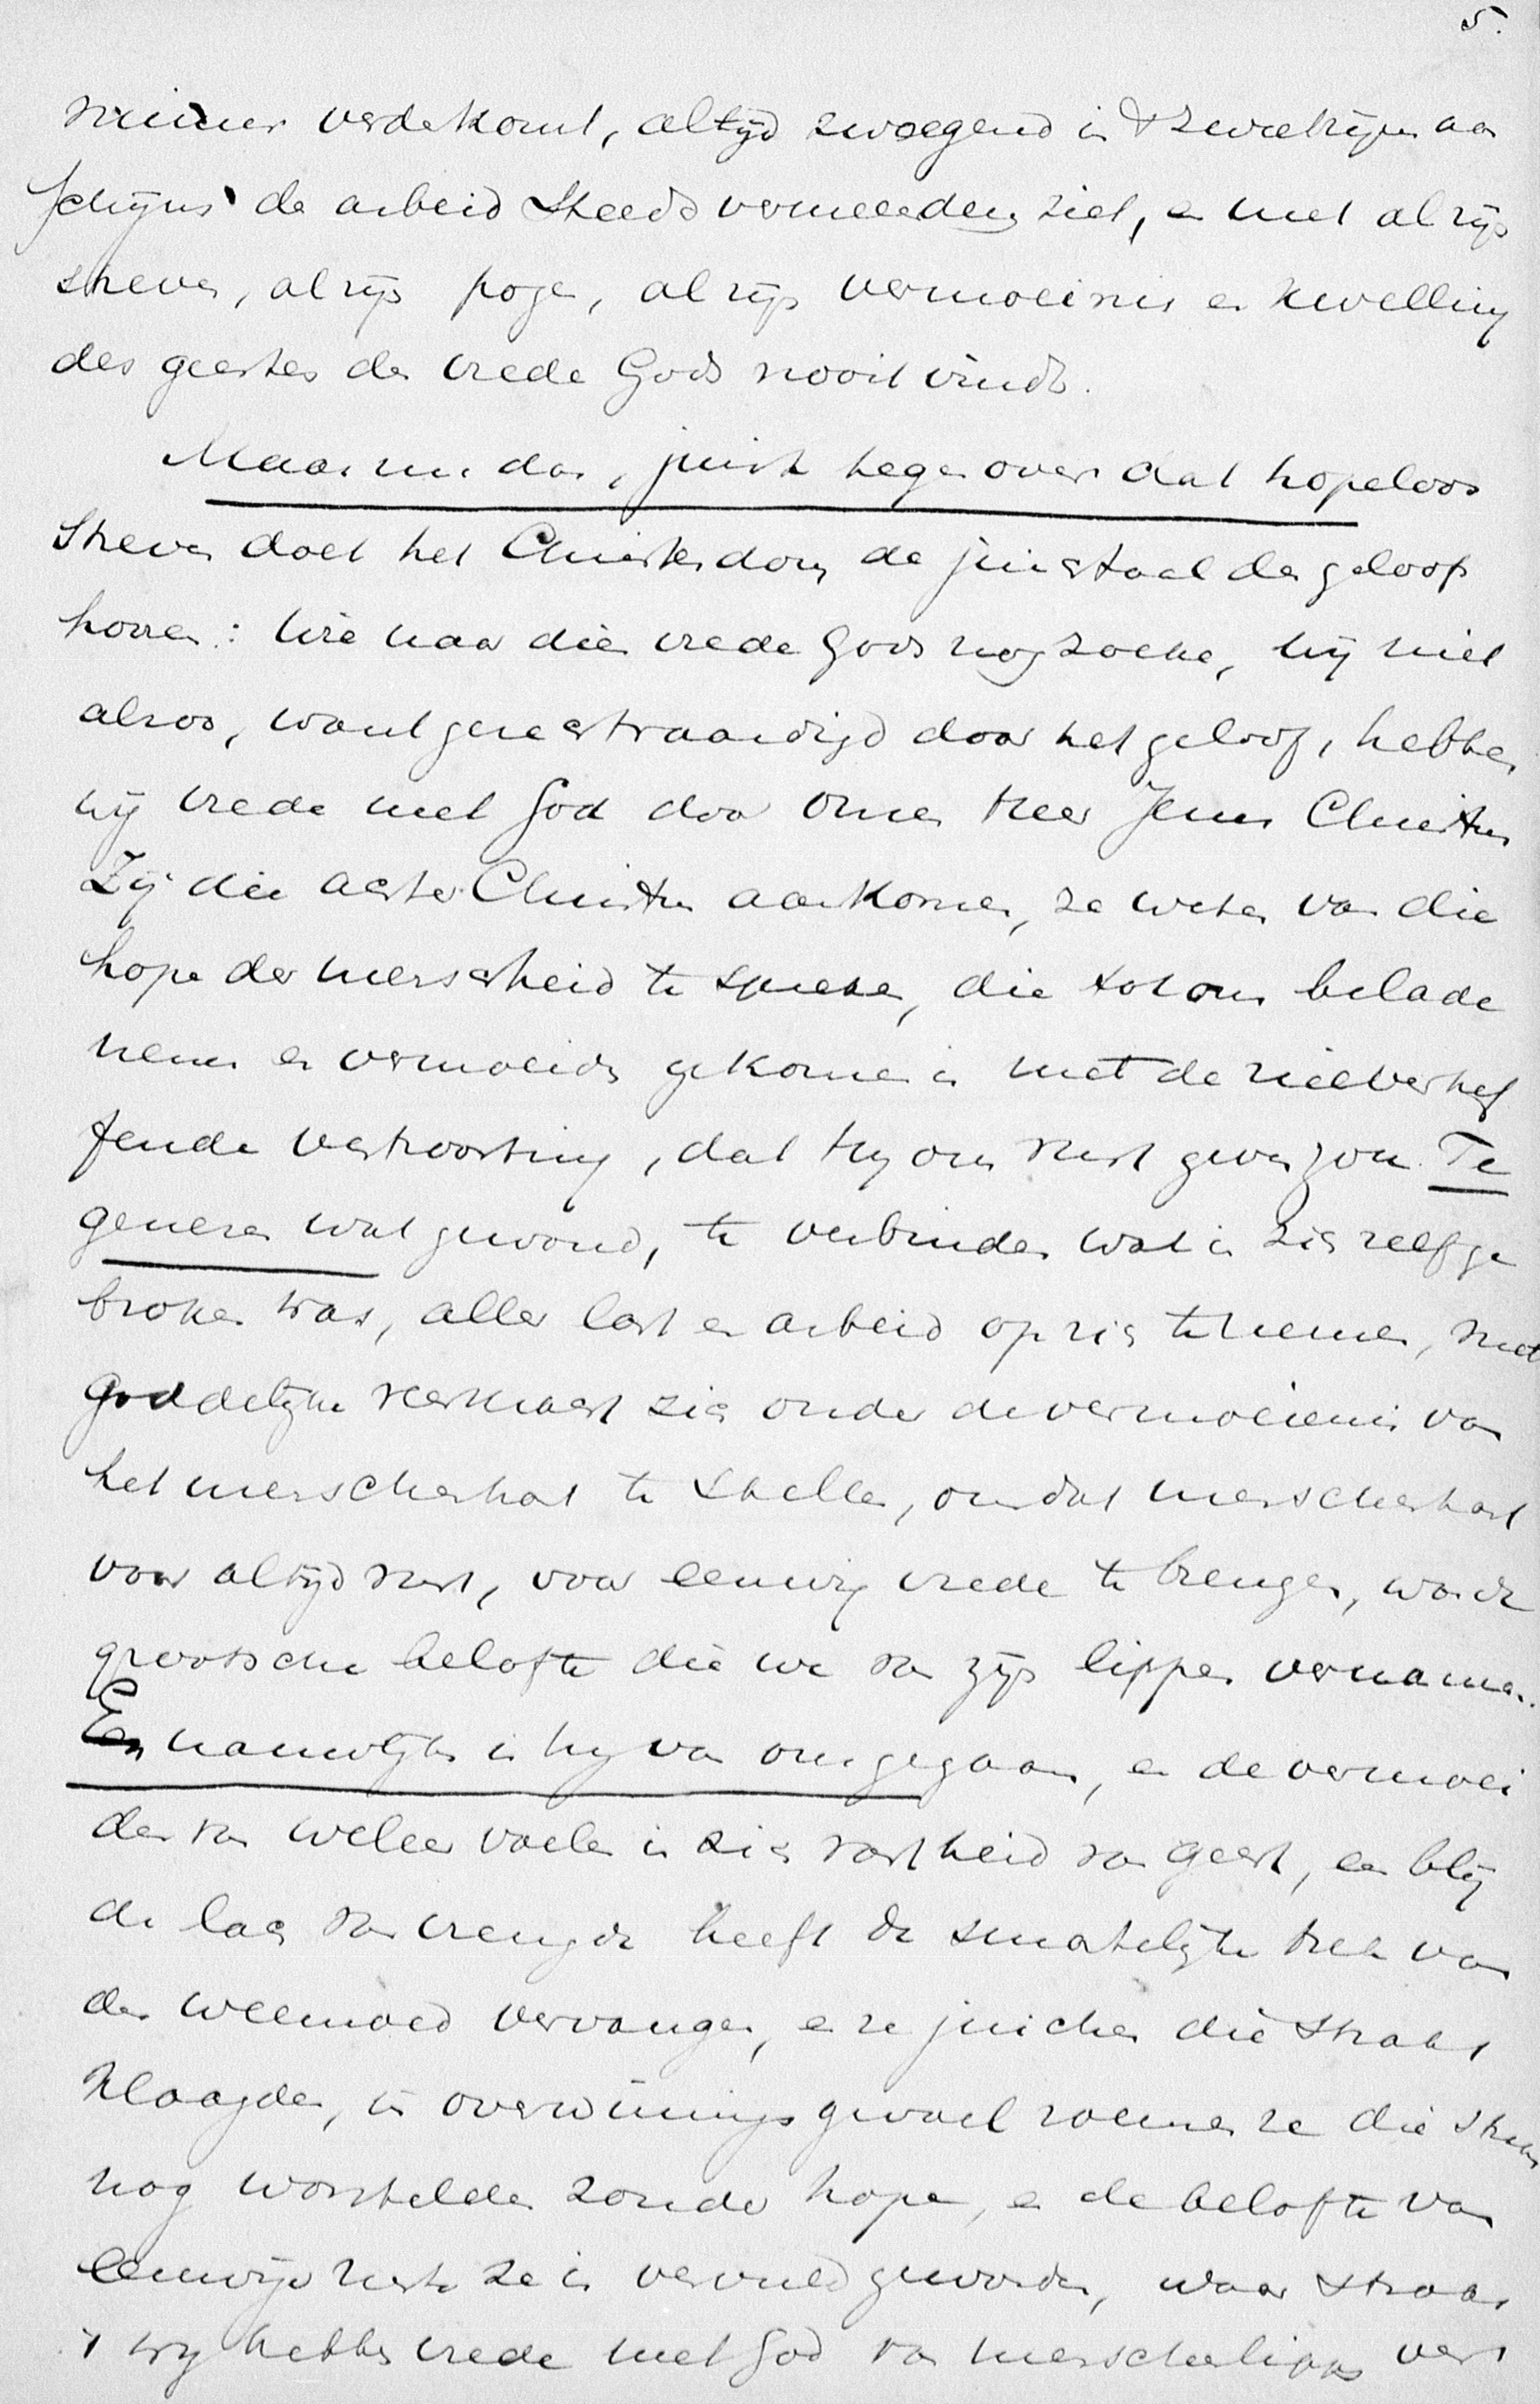 5.
nimmer verder komt, altijd zwoegend in 't zweet zijns aan
schijns de arbeid steeds vermeerderen ziet, en met al zijn
streven, al zijn pogen, al zijn vermoeinis en kwelling
des geestes de vrede Gods nooit vindt.
Maar nu dan, juist tegenover dat hopeloos
streven doet het Christendom de juichtaal des geloofs
hooren: Wie naar dien vrede Gods nog zoeke, wij niet
alzoo, want gerechtvaardigd door het geloof, hebben
wij vrede met God door onzen Heer Jezus Christus
Zij die achter Christus aankomen, ze weten van die
hope der menscheid te spreken, die tot ons belade
nenen en vermoeiden gekomen is met de zielverhef
fende vertroosting, dat Hij ons rust geven zou. Te
genezen wat gewond, te verbinden wat in zich zelf ge
broken was, aller last en arbeid op zich te nemen, met
Goddelijke veerkracht zich onder de vermoeienis van
het menschenhart te stellen, om dat menschenhart
voor altijd rust, voor eeuwig vrede te brengen, was de
grootsche belofte die we van zijn lippen vernamen.
En nauwelijks is hij van ons gegaan, en de vermoei
den van weleer voelen in zich vastheid van geest, een blij
de lach van vreugde heeft de smartelijke trek van
den weemoed vervangen, en ze juichen die straks
klaagden, in overwinningsgevoel roemen ze die straks
nog worstelden zonder hope, en de belofte van
eeuwige rust ze is vervuld geworden, waar straks
't wij hebben vrede met God van menschenlippen